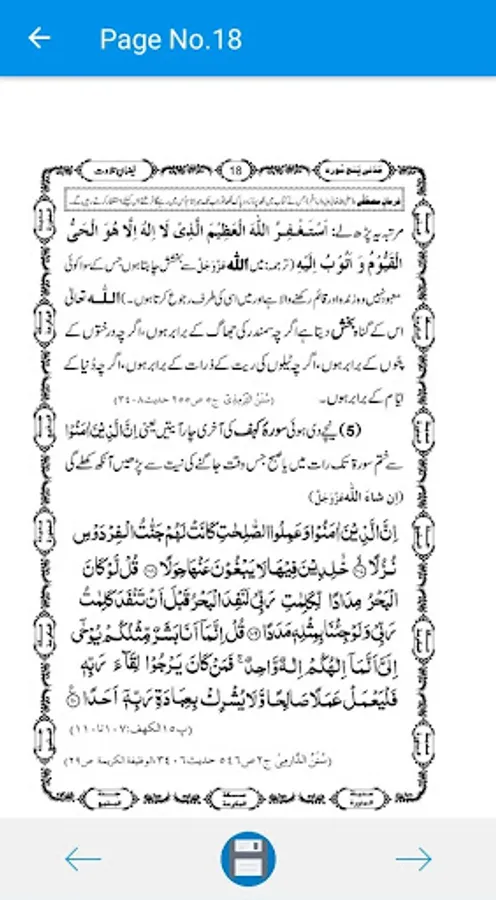 Page No.18
فیضانِ تلاوت
18
مَدَنی پنج سُورہ
فرمانِ مصطفٰی
مرتبہ یہ پڑھ لے: اَسْتَغْفِرُ اللّٰهَ الْعَظِيْمَ الَّذِىْ لَا اِلٰهَ اِلَّا هُوَ الْحَىُّ
الْقَيُّوْمُ وَ اَتُوْبُ اِلَيْهِ (ترجمہ: میں اللہ عَزَّوَجَلَّ سے بخشش چاہتا ہوں جس کے سوا کوئی
معبود نہیں وہ زندہ اور قائم رکھنے والا ہے اور میں اسی کی طرف رجوع کرتا ہوں۔) اللہ تعالٰی
اس کے گناہ بخش دیتا ہے اگرچہ سمندر کی جھاگ کے برابر ہوں، اگرچہ درختوں کے
پتّوں کے برابر ہوں، اگرچہ ٹیلوں کی ریت کے ذرات کے برابر ہوں، اگرچہ دُنیا کے
ایّام کے برابر ہوں۔ (سُنَنُ التِّرْمِذِی ج۵ ص۲۵۵ حدیث۳۴۰۸)
(5) نیچے دی ہوئی سورۂ کہف کی آخری چار آیتیں یعنی اِنَّ الَّذِیْنَ اٰمَنُوْا
سے ختم سورۃ تک رات میں یا صبح جس وقت جاگنے کی نیت سے پڑھیں آنکھ کھلے گی
(اِن شاءَ اللہ عَزَّوَجَلَّ)
اِنَّ الَّذِیْنَ اٰمَنُوْا وَعَمِلُوا الصّٰلِحٰتِ كَانَتْ لَهُمْ جَنّٰتُ الْفِرْدَوْسِ
نُزُلًا ﴿۱۰۷﴾ خٰلِدِیْنَ فِیْهَا لَا یَبْغُوْنَ عَنْهَا حِوَلًا ﴿۱۰۸﴾ قُلْ لَّوْ كَانَ
الْبَحْرُ مِدَادًا لِّكَلِمٰتِ رَبِّیْ لَنَفِدَ الْبَحْرُ قَبْلَ اَنْ تَنْفَدَ كَلِمٰتُ
رَبِّیْ وَلَوْ جِئْنَا بِمِثْلِهٖ مَدَدًا ﴿۱۰۹﴾ قُلْ اِنَّمَاۤ اَنَا بَشَرٌ مِّثْلُكُمْ یُوْحٰۤی
اِلَیَّ اَنَّمَاۤ اِلٰهُكُمْ اِلٰهٌ وَّاحِدٌ ۚ فَمَنْ كَانَ یَرْجُوْا لِقَآءَ رَبِّهٖ
فَلْیَعْمَلْ عَمَلًا صَالِحًا وَّلَا یُشْرِكْ بِعِبَادَةِ رَبِّهٖۤ اَحَدًا ﴿۱۱۰﴾
(پ۱۵ الکھف: ۱۰۷ تا ۱۱۰)
(سُنَنُ الدَّارِمِیّ ج۲ ص۵۴۶ حدیث۳۴۰۶، الوظیفۃ الکریمۃ ص۲۹)